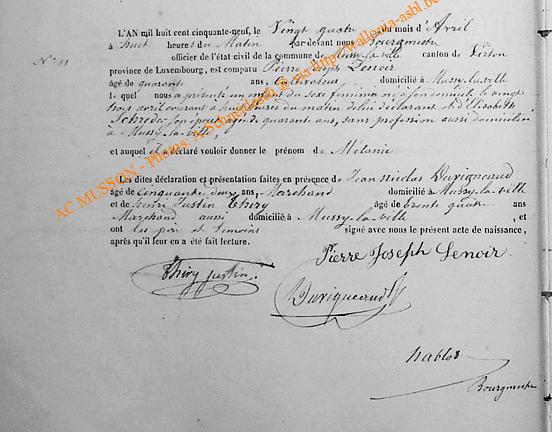 N° 11
L'AN mil huit cent cinquante-neuf, le Vingt quatre du mois d'Avril
à huit heures du Matin par devant nous Bourgmestre
officier de l'état civil de la commune de Mussy-la-ville canton de Virton
province de Luxembourg, est comparu Pierre Joseph Lenoir
âgé de quarante ans, Cultivateur, domicilié à Mussy-la-ville
lequel nous a présenté un enfant du sexe féminin né à le vingt
trois avril courant à heures du matin de lui déclarant et d'Elisabeth
Schreder son épouse âgée de quarante ans, sans profession aussi domiciliée
à Mussy-la-ville,
et auquel il a déclaré vouloir donner le prénom de Mélanie
Les dites déclaration et présentation faites en présence de Jean Nicolas Duvigneaud
âgé de Cinquante deux ans, Marchand domicilié à Mussy-la-ville
et de Thiry âgé de trente quatre ans
Marchand aussi domicilié à Mussy-la-ville, et
ont les père et témoins signé avec nous le présent acte de naissance,
après qu'il leur en a été fait lecture.
Pierre Joseph Lenoir.
Thiry Justin.
Duvigneaud
Bourgmestre
AC MUSSON - Photos: A. via http://wallonia-asbl.be